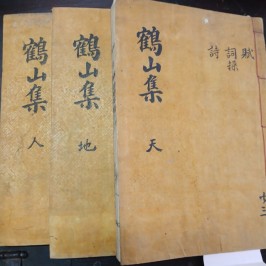 賦
詞操
詩
鶴山集 天
共三
鶴山集 地
鶴山集 人